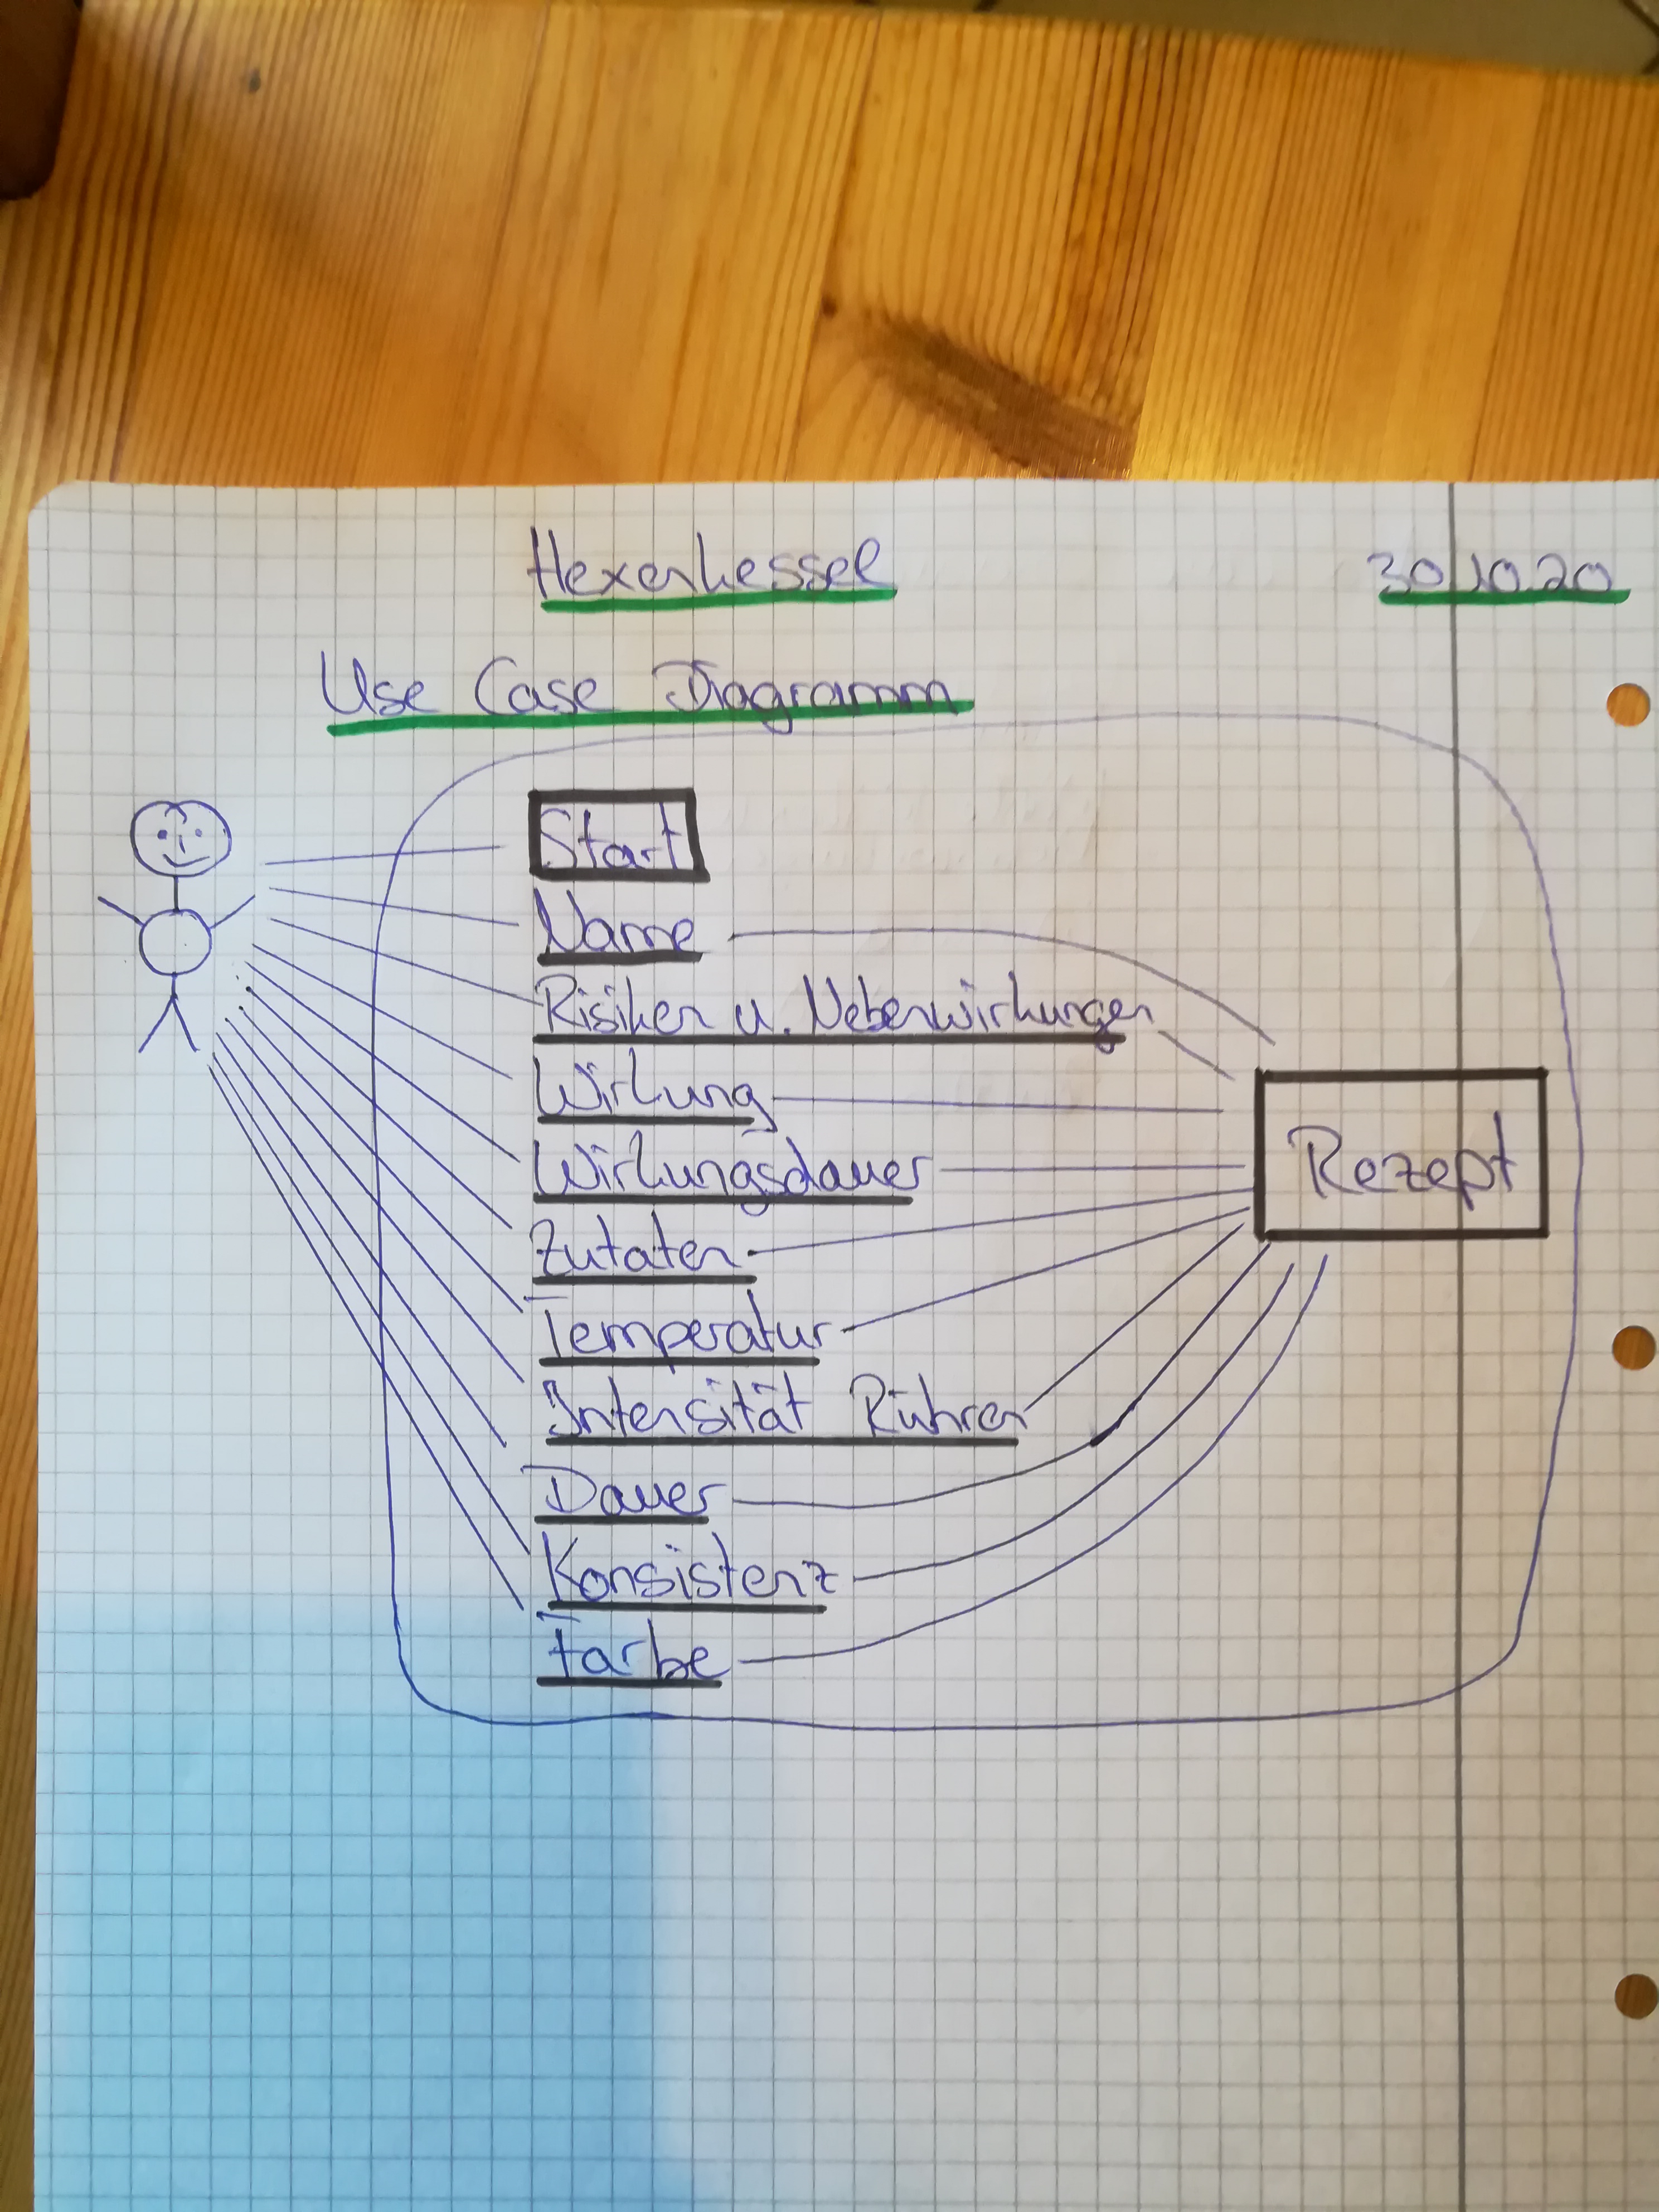 Hexenkessel 30.10.20
Use Case Diagramm
Start
Name
Risiken u. Nebenwirkungen
Wirkung
Wirkungsdauer
Rezept
Zutaten
Temperatur
Intensität Rühren
Dauer
Konsistenz
Farbe